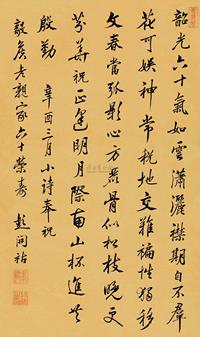 韶光六十氣如雲瀟灑襟期自不羣
花可娛神常税地交難褊性獨移
文春當弧影心方
骨似松枝晚更
芬華祝正逢明月際南山杯進共
殷勤
辛酉三月小詩奉祝
毅老親家六十榮壽 彭開祐